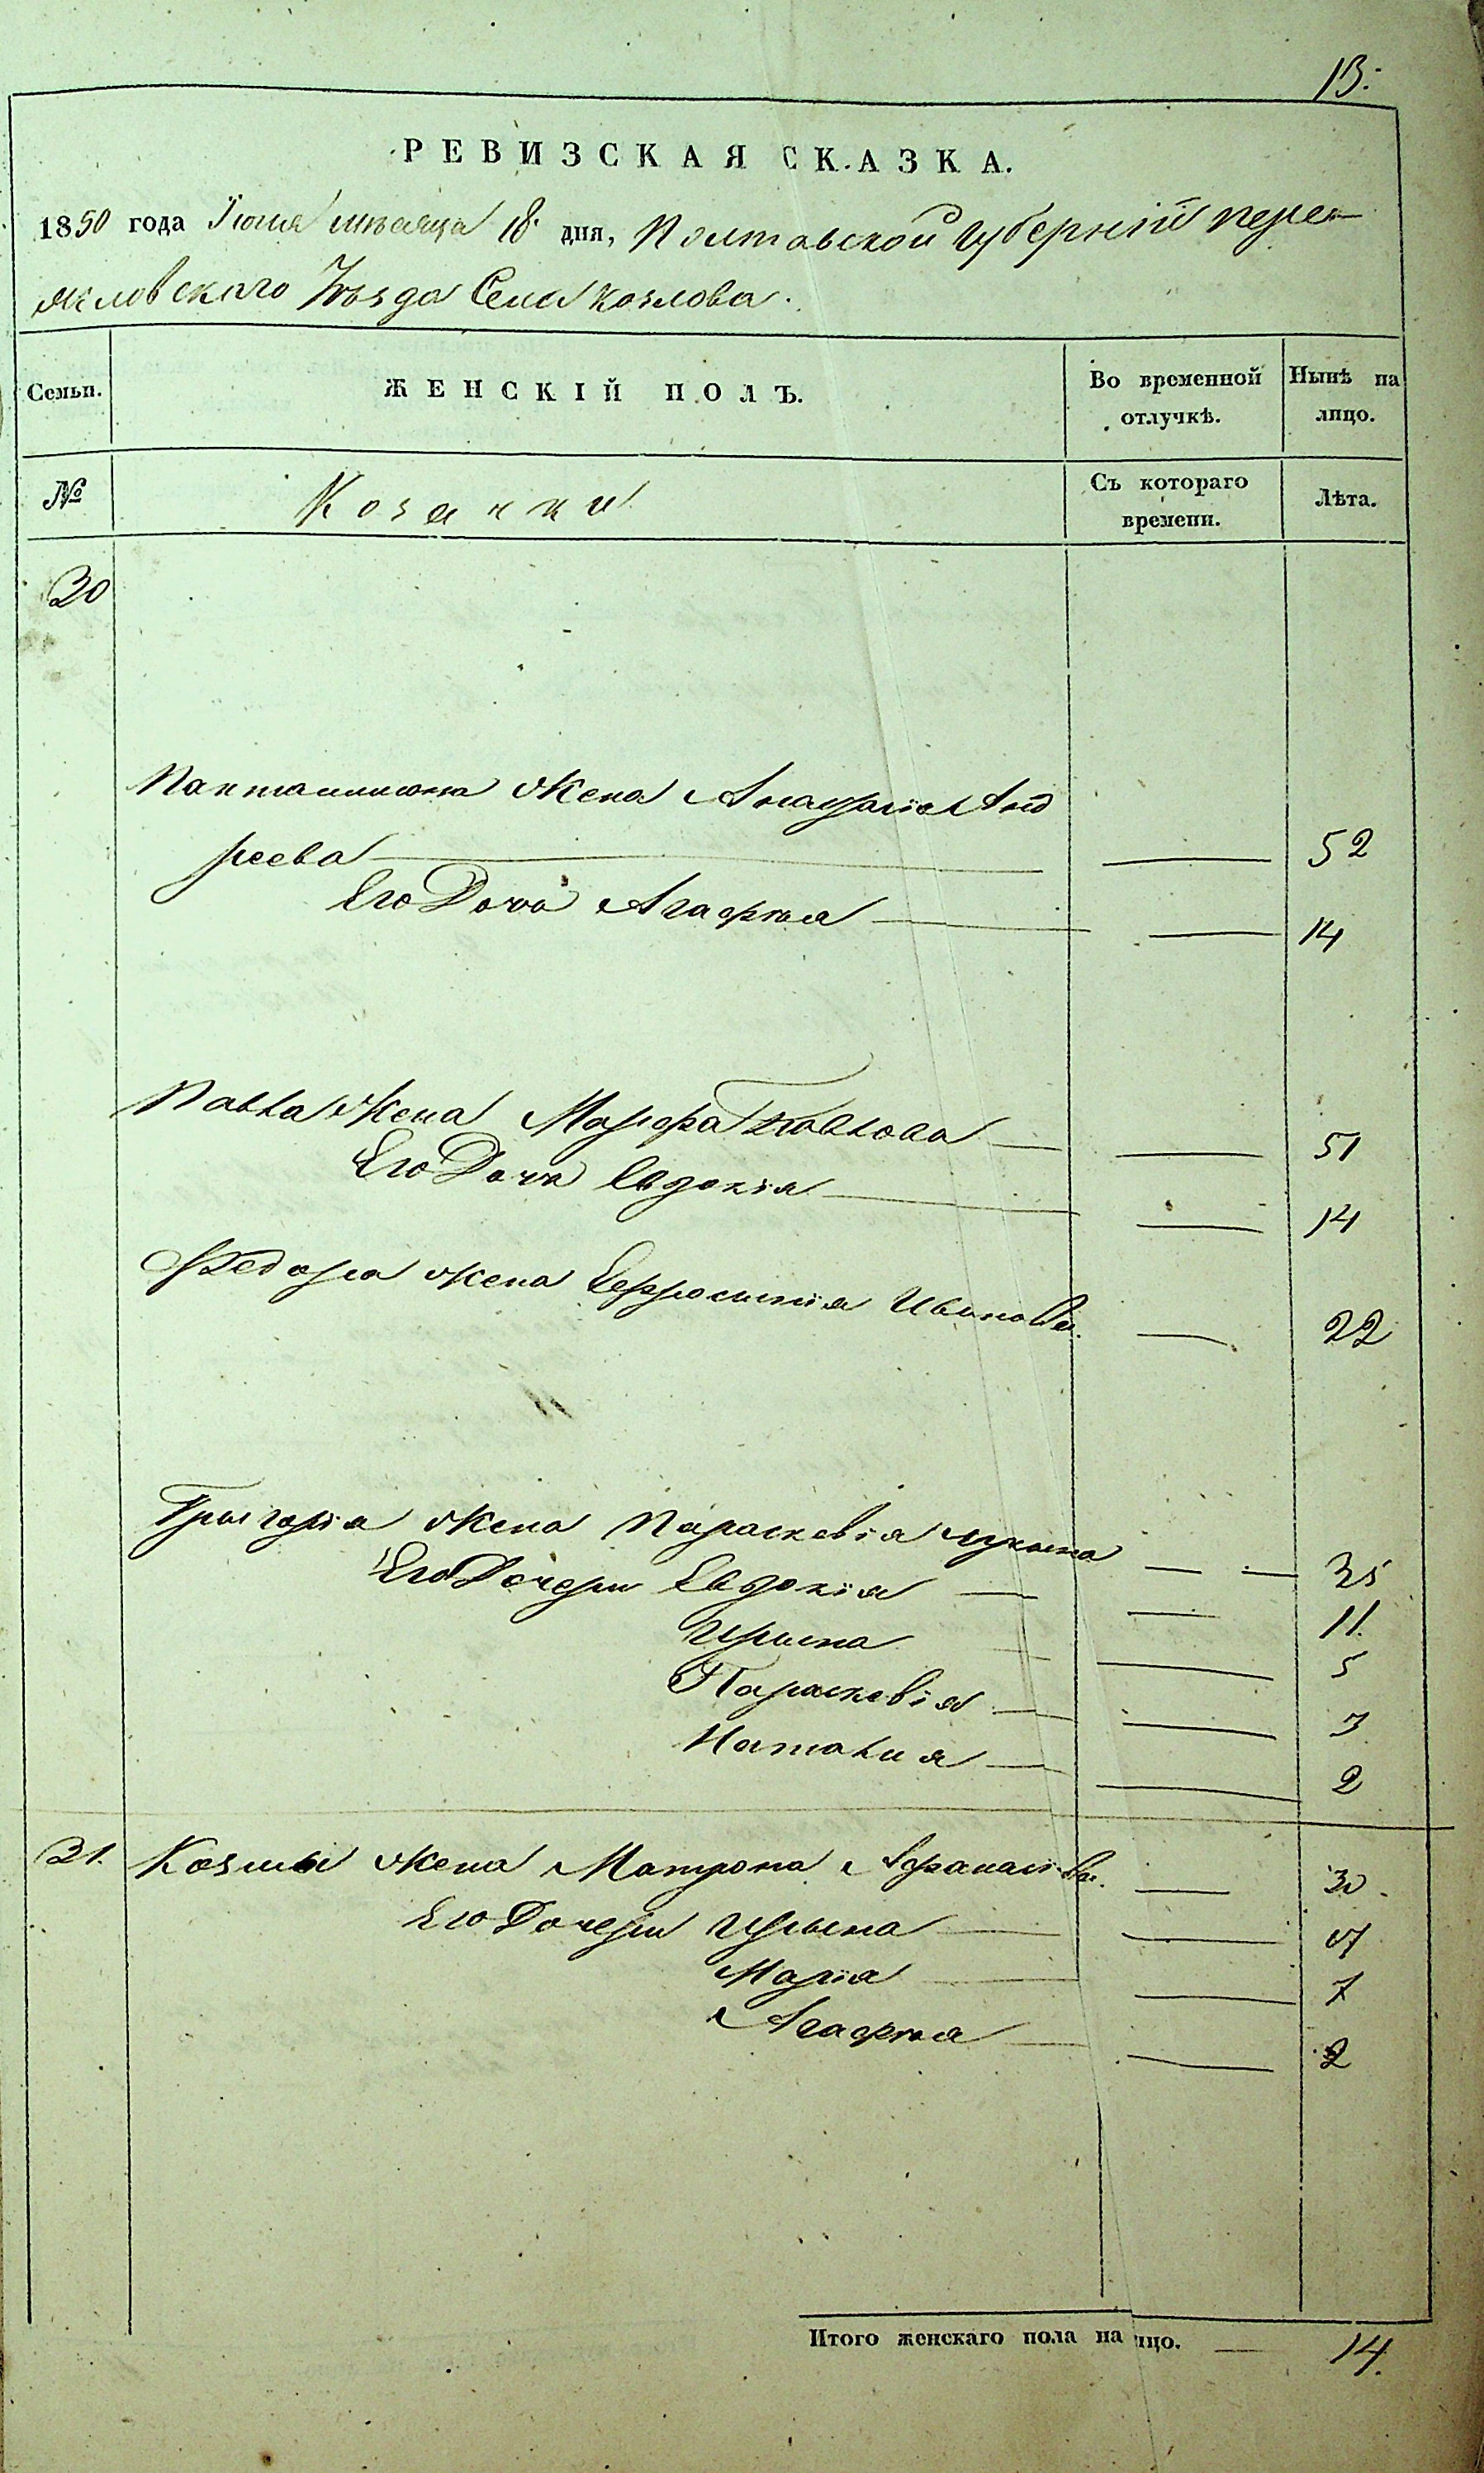 13.
РЕВИЗСКАЯ СКАЗКА.
1850 года Іюня мѣсяца 18 дня, Полтавской губерніи перея-
яславскаго Уѣзда Села Козлова.
Семьи.
ЖЕНСКІЙ ПОЛЪ.
Во временной отлучкѣ.
Ныне на лицо.
№
Козачки
Съ котораго времени.
Лѣта.
20
Пантелимона Жена Анастасія Анд
реева 52
Его Дочь Агафья 14
Павла Жена Марфа Павлова 51
Его Дочь Евдокія 14
Федора жена Ефросинія Иванова. 22
Григорія жена Параскевія Лукина 35
Его Дочери Евдокія 11.
Ирина 5
Параскевія 3
Наталия 2
21. Козмы жена Матрона Афанасіева. 30.
Его Дочери Ирина
Марія 7
Агафья 2
Итого женскаго пола на лицо. 14.